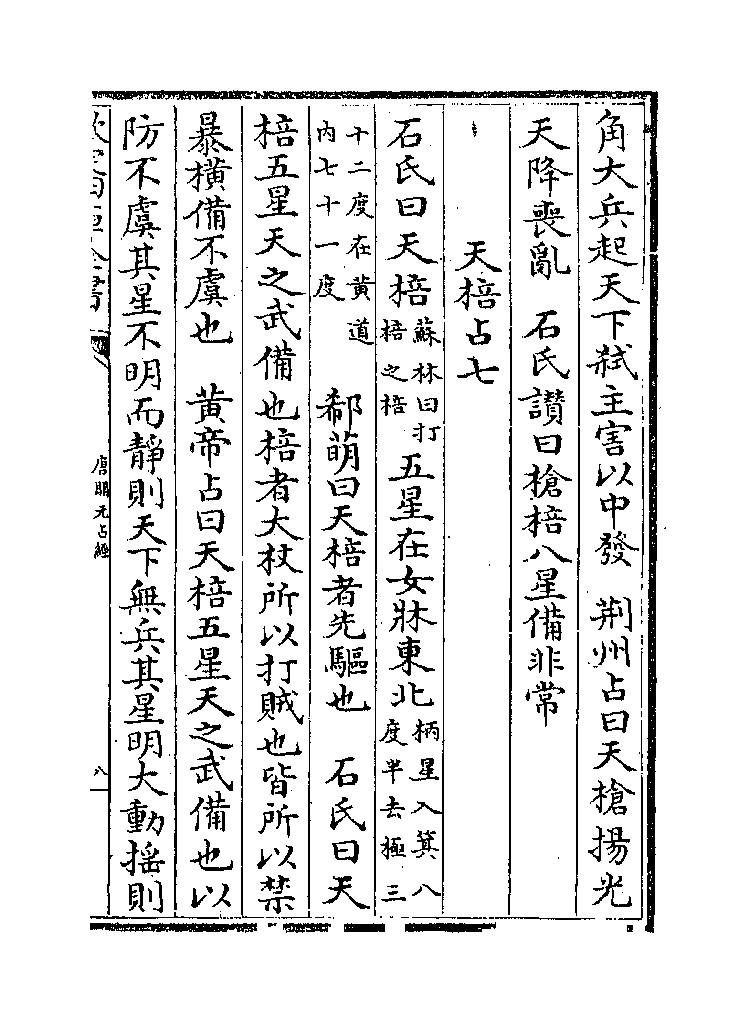 角大兵起天下弑主害以中發　荆州占曰天槍揚光
天降喪亂　石氏讃曰槍棓八星備非常
天棓占七
石氏曰天棓蘇林曰打棓之棓五星在女牀東北柄星入箕八度半去極三
十二度在黄道内七十一度　郗萌曰天棓者先驅也　石氏曰天
棓五星天之武備也棓者大杖所以打賊也皆所以禁
暴横備不虞也　黄帝占曰天棓五星天之武備也以
防不虞其星不明而静則天下無兵其星明大動揺則
唐開元占經
八